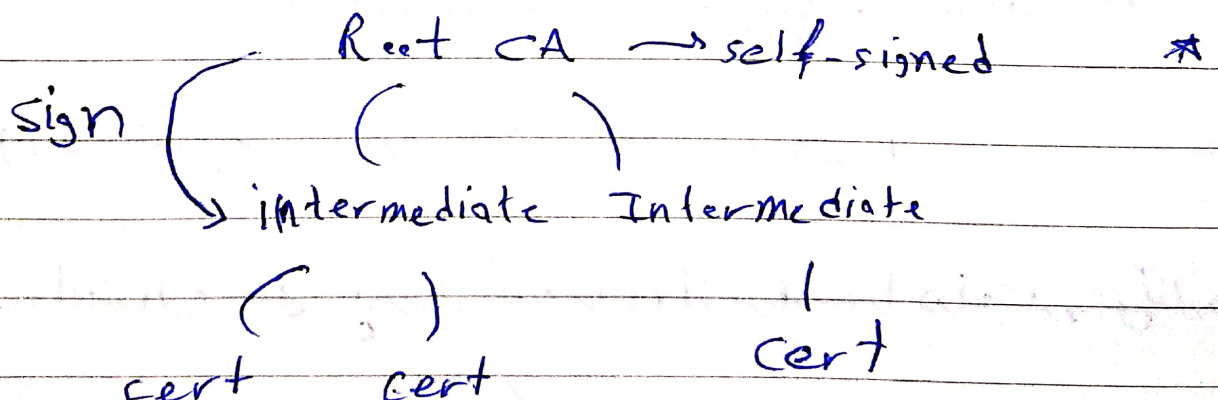 Root CA → self-signed *
sign
intermediate Intermediate
cert cert cert